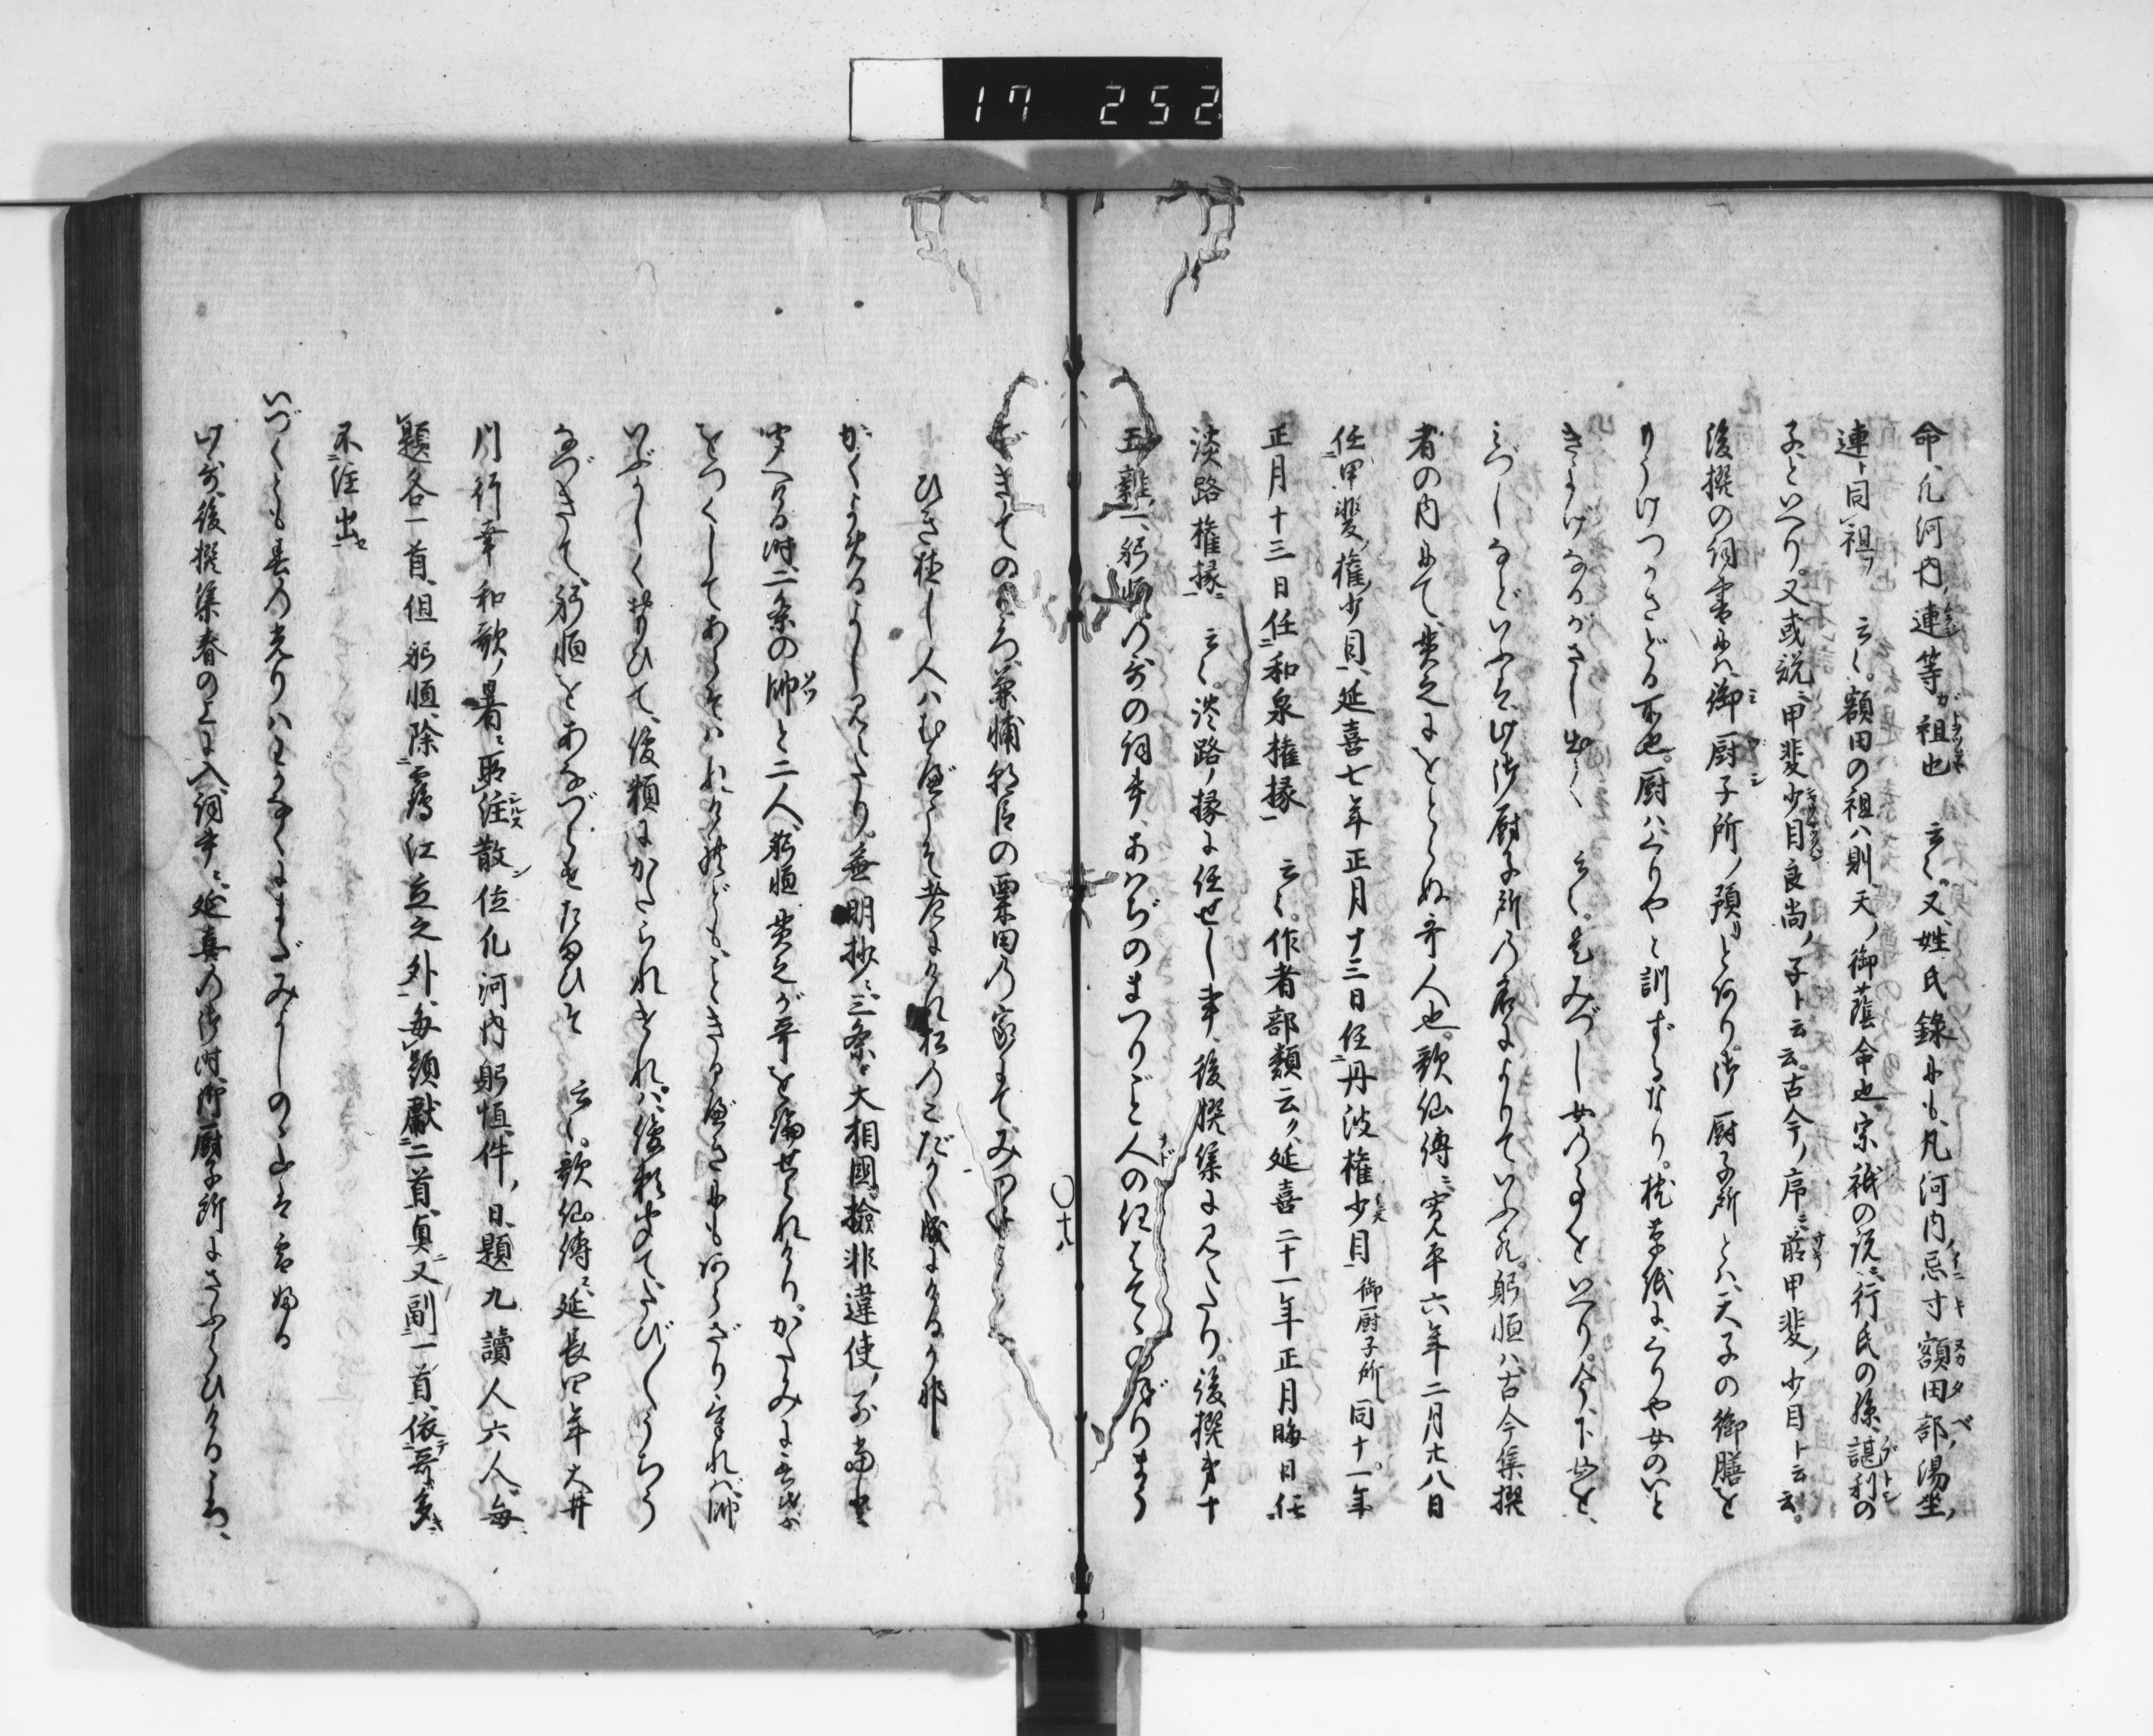 17 252
命、凡河内連等ガ祖也 云〻。又、姓氏錄にも、凡河内ノ忌寸額田部ノ湯坐ノ
連ト同祖ノ 云〻。額田の祖ハ則、天ノ御蔭命也。宗祇の説ニ、行氏の孫、諶利の
子といへり。又或説、甲斐少目良尚ノ子ト云云。古今ノ序ニ前甲斐ノ少目ト云云。
後撰の詞書にハ、御厨子所ノ預リと有り。御厨子所とハ、天子の御膳を
りうけつかさどる所也。厨ハくりやと訓ずるなり。枕草紙に、くりや女のいと
きよげなるがさし出て 云〻。是みづし女の事をいへり。今下女を、
みづしなどいふは、此御厨子所の名によりていふ也。躬恒ハ、古今集撰
者の内にて、貫之にをとらぬ哥人也。歌仙傳ニ、寛平六年二月廿八日
任甲斐ノ權少目、延喜七年正月十三日任丹波權少目 御厨子所 同十一年
正月十三日任和泉權掾 云〻。作者部類云ク、延喜二十一年正月晦日任
淡路權掾 云〻。淡路ノ掾に任せし事、後撰集に見えたり。後撰第十
五雜一、躬恒の哥の詞書、あはぢのまつりごと人の任はてゝのぼりまう
できてのころ、兼輔朝臣の粟田の家にて、みつね
ひき植し人ハむべこそ老にけれ松のこだかく成にける哉
かくよめるよし見えたり。無明抄ニ、三条ノ大相國、撿非違使ノ別當と
聞へける時、二条の帥と二人、躬恒貫之が哥を論ぜられけり。かたみに
をつくしてあらそハれけれども、ことさるべきにもあらざりければ、帥
いぶかしくおもひて、俊頼にかたられければ、俊頼聞て、たび〱うちう
なづきて、躬恒をあなづらせたまひそ 云〻。歌仙傳ニ、延長四年大井
川行幸和歌ノ署ニ所注散位凡河内躬恒件ノ日、題九讀人六人、毎
題各一首、但躬恒、除鶴江立之外、毎題獻二首、貞又副一首、依哥多
不注出
いづくとも春の光りハわかなくにまだみよしのゝ山は雪ふる
此哥、後撰集春の上に入、詞書ニ、延喜の御時、御厨子所にさふらひけるころ、
〇十八